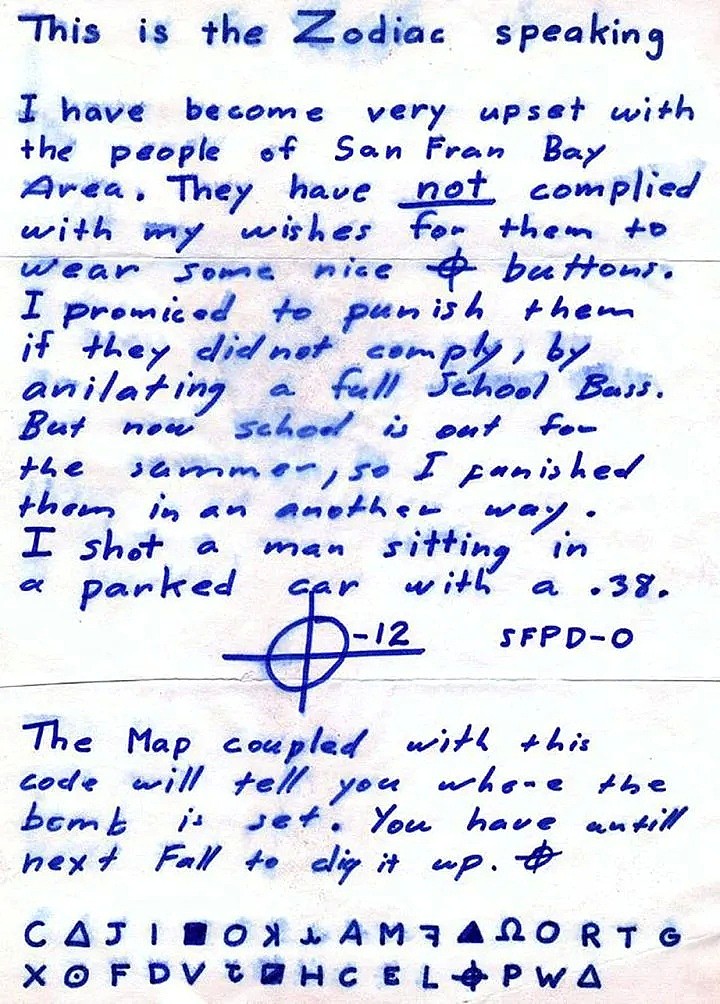 This is the Zodiac speaking
I have become very upset with
the people of San Fran Bay
Area. They have not complied
with my wishes for them to
wear some nice ⌖ buttons.
I promiced to punish them
if they did not comply, by
anilating a full School Buss.
But now school is out for
the summer, so I punished
them in an another way.
I shot a man sitting in
a parked car with a .38.
⌖-12 SFPD-0
The Map coupled with this
code will tell you where the
bomb is set. You have untill
next Fall to dig it up. ⌖
C Δ J I ■ O ꓘ ⅄ A M ꟻ ▲ Ω O R T G
X ⊙ F D V Ⴀ ◪ H C E L ⌖ P W Δ